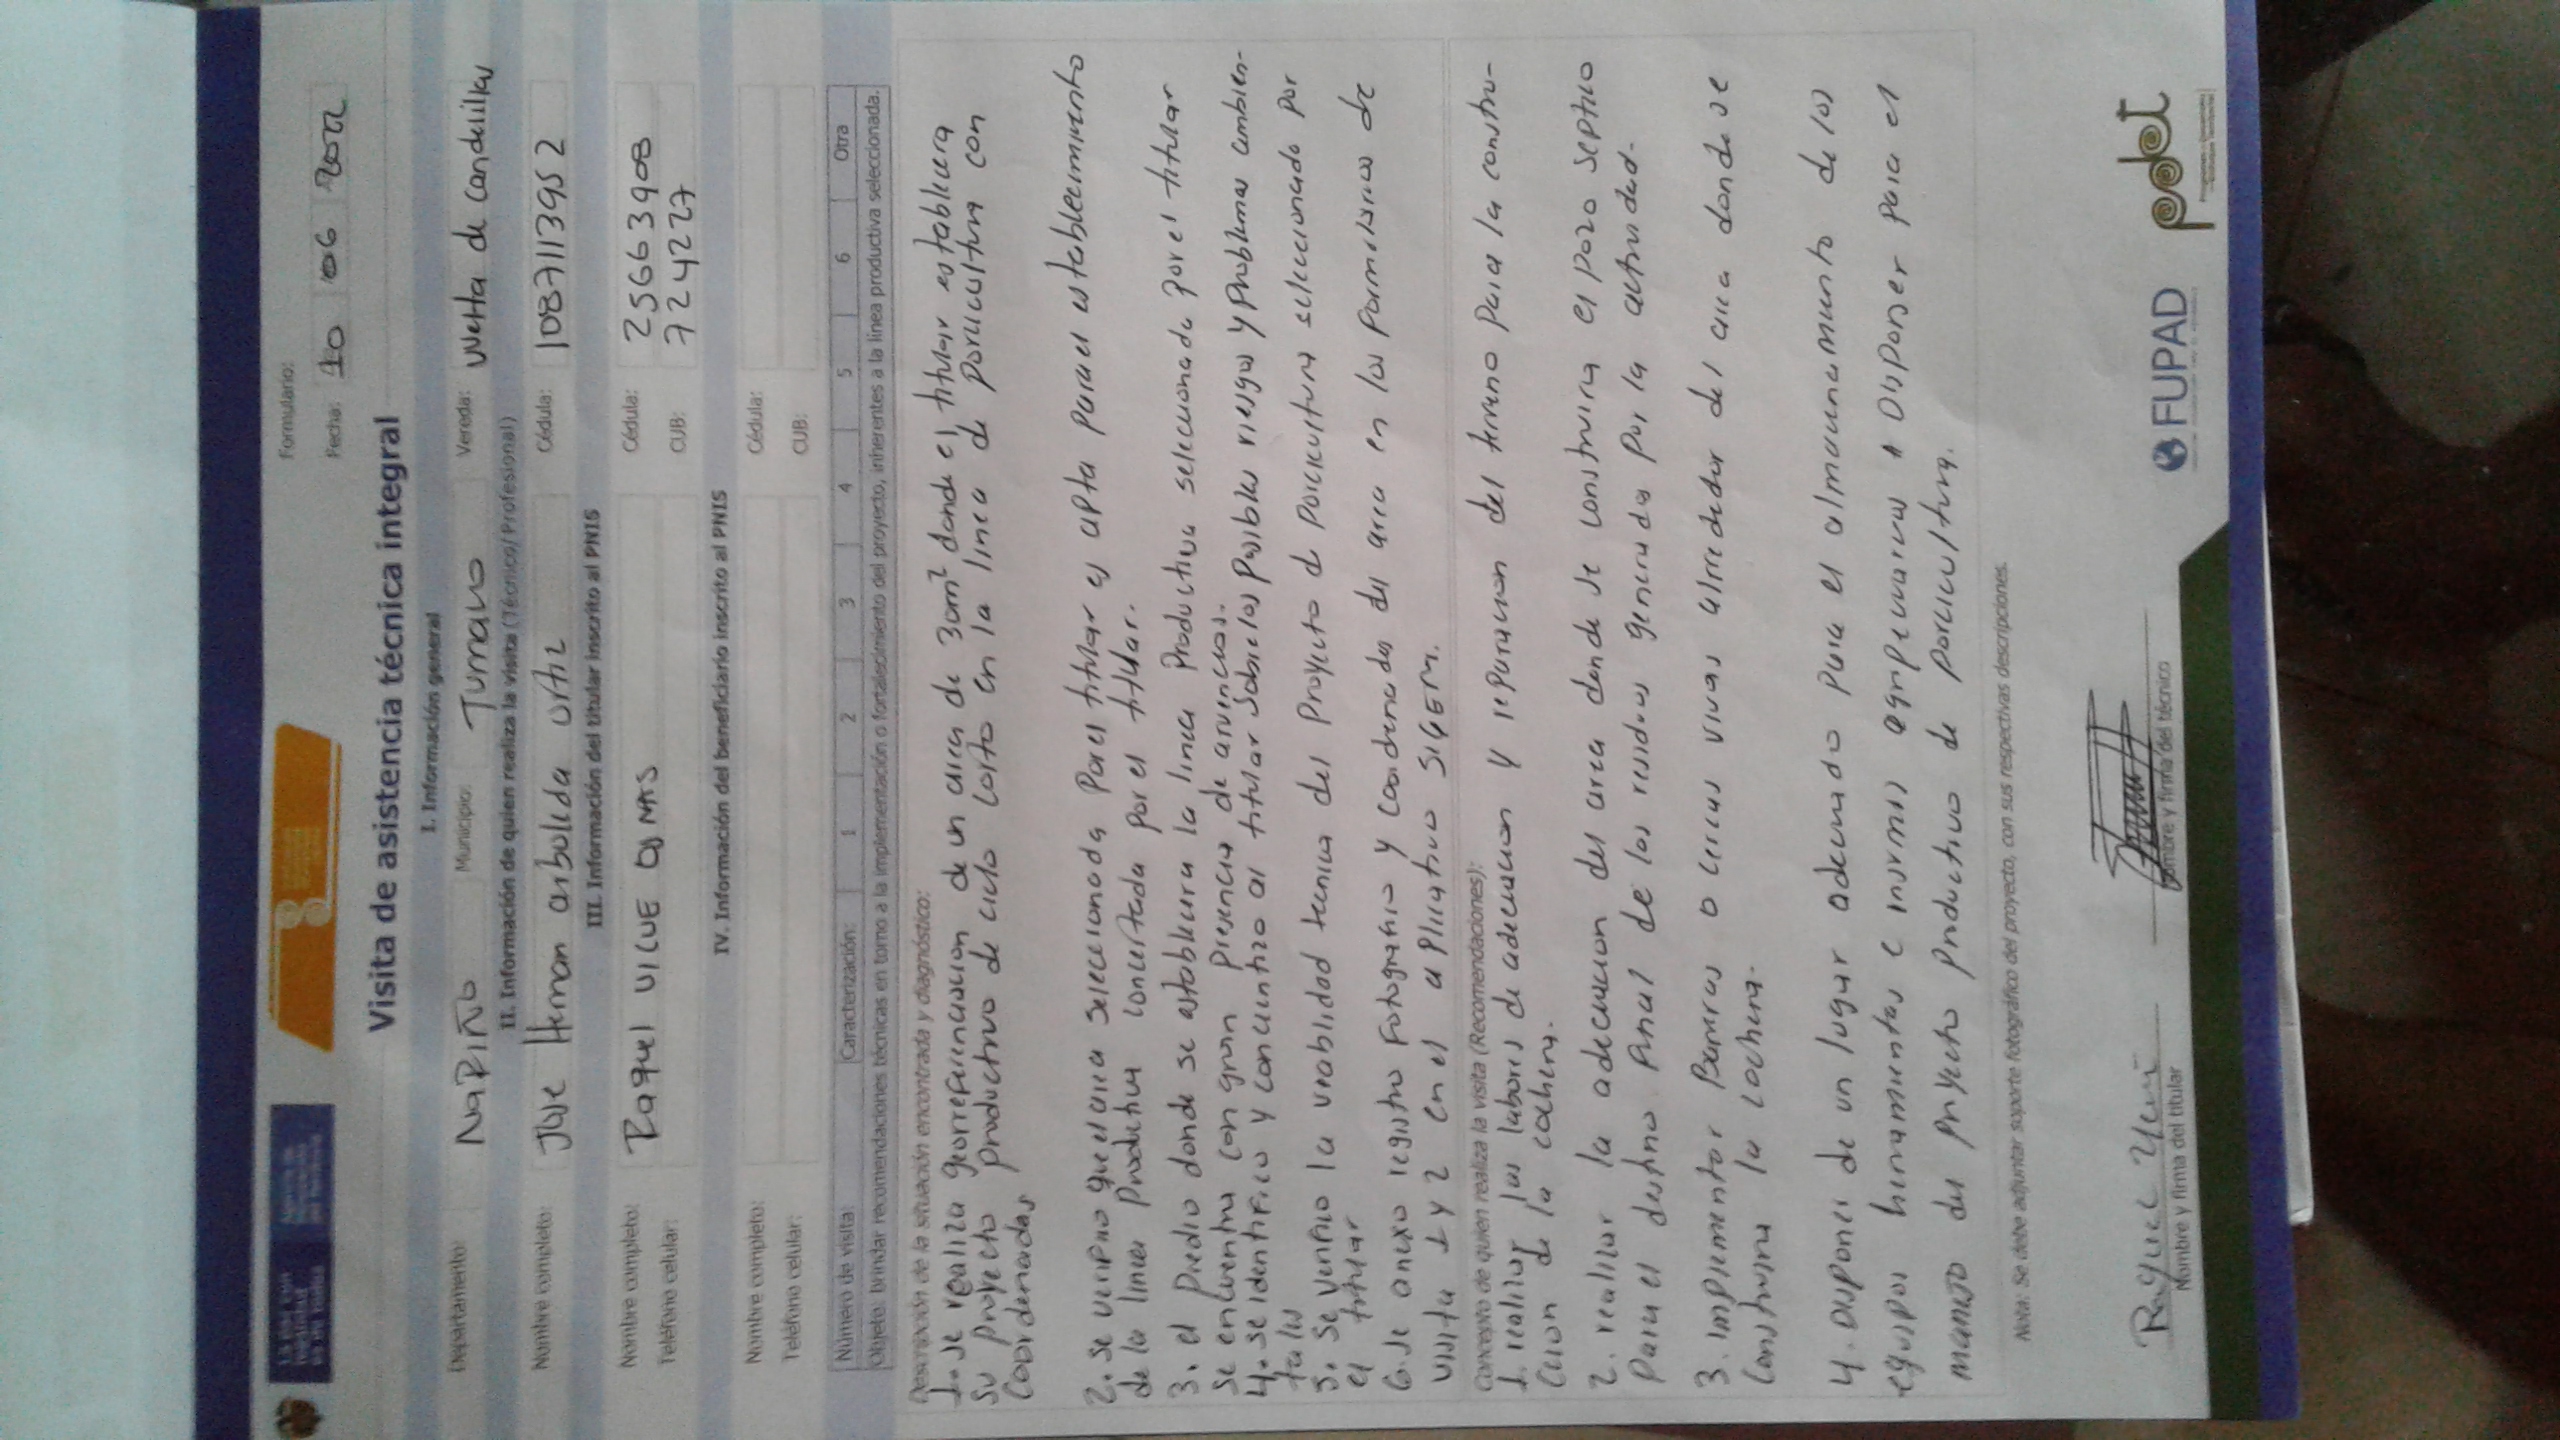 Formulario:
Fecha: 10 06 2022
Visita de asistencia técnica integral
I. Información general
Departamento: NaRIÑO Municipio: Tumaco Vereda: vuelta de candelillas
II. Información de quien realiza la visita (Técnico/ Profesional)
Nombre completo: Jose Hernan arboleda ortiz Cédula: 1087113952
III. Información del titular inscrito al PNIS
Nombre completo: Raquel VICUE Cédula: 25663908
Teléfono celular: CUB: 724227
IV. Información del beneficiario inscrito al PNIS
Nombre completo: Cédula:
Teléfono celular: CUB:
Número de visita: Caracterización: 1 2 3 4 5 6 Otra
Objeto: brindar recomendaciones técnicas en torno a la implementación o fortalecimiento del proyecto, inherentes a la línea productiva seleccionada.
Descripción de la situación encontrada y diagnóstico:
1. se realiza georreferenciacion de un area de 30m² donde el titular establecera
su proyecto productivo de ciclo corto en la linea de porcicultura con
Coordenadas
2. se verifico que el area seleccionada por el titular es apta para el establecimiento
de la linea productiva concertada por el titular.
3. el predio donde se establecera la linea productiva seleccionada por el titular
se encuentra con gran presencia de arvenses.
4. se identifico y concientizo al titular sobre los posibles riesgos y problemas ambien-
tales
5. se verifico la viabilidad tecnica del proyecto de porcicultura seleccionado por
el titular
6. se anexo registro fotografico y coordenadas del area en los formularios de
visita 1 y 2 en el aplicativo SIGEM.
Concepto de quien realiza la visita (Recomendaciones):
1. realizar las labores de adecuacion y reparacion del terreno para la constru-
ccion de la cochera.
2. realizar la adecuacion del area donde se construira el pozo septico
para el destino final de los residuos generados por la actividad.
3. implementar barreras o cercas vivas alrededor del area donde se
construira la cochera.
4. disponer de un lugar adecuado para el almacenamiento de los
equipos herramientas e insumos agropecuarios a Disponer para el
manejo del proyecto productivo de porcicultura.
Nota: Se debe adjuntar soporte fotográfico del proyecto, con sus respectivas descripciones.
Raquel
Nombre y firma del titular
Nombre y firma del técnico
FUPAD
pdet